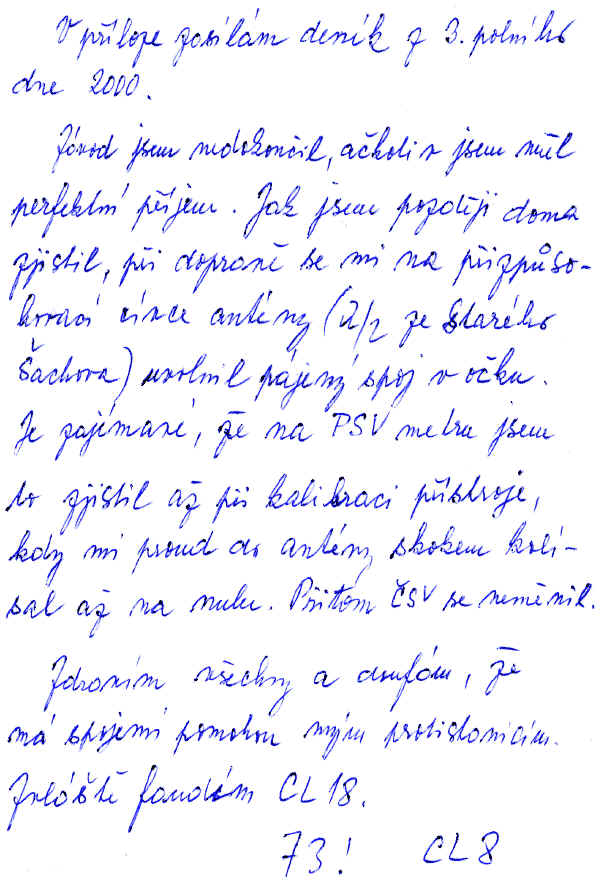 V příloze zasílám deník z 3. polního
dne 2000.
Závod jsem nedokončil, ačkoliv jsem měl
perfektní příjem. Jak jsem později doma
zjistil, při dopravě se mi na přizpůso-
bovací cívce antény (λ/2 ze Starého
Šachova) uvolnil pájený spoj v očku.
Je zajímavé, že na PSV metru jsem
to zjistil až při kalibraci přístroje,
kdy mi proud do antény skokem kolí-
sal až na nulu. Přitom ČSV se neměnil.
Zdravím všechny a doufám, že
má spojení pomohou mým protistanicím.
Zvláště fandím CL 18.
73! CL 8